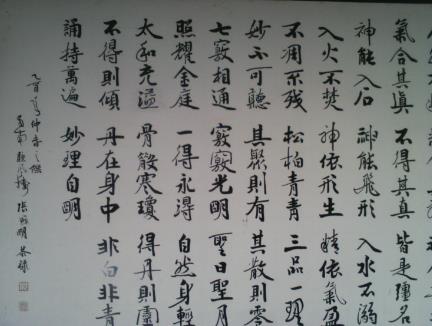 氣合其真 不得其真 皆是彊名
神能入石 神能飛形 入水不溺
入火不焚 神依形生 精依氣盈
不凋不残 松柏青青 三品一理
妙不可聽 其聚則有 其散則零
七竅相通 竅竅光明 聖日聖月
照耀金庭 一得永得 自然身輕
太和充溢 骨散寒瓊 得丹則靈
不得則傾 丹在身中 非白非青
誦持萬遍 妙理自明
恭録